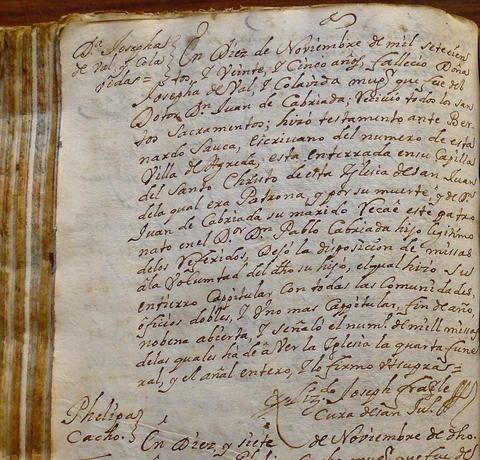 Dª Josepha
de Val, y Cola
vidas =
En Diez de Noviembre de mil setecien
tos, y Veinte, y Cinco años, fallecio Doña
Josepha de Val, y Colavida mugr que fue del
Dotor Dn Juan de Cabriada; Recivio todos los san
tos Sacramentos; hizo testamento ante Ber
nardo Sauca, escrivano del numero de esta
Villa de Agreda; esta enterrada en su Capilla
del Santo Christo de esta Iglesia de san Juan
dela qual era Patrona, y por su muerte, y de Dn
Juan de Cabriada su marido Recae este patro
nato en el Dr Dn Pablo Cabriada hijo legitimo
delos Referidos, Dejó la disposicion de missas
ála Voluntad del dho su hijo, el qual hizo su
entierro Capitular, con todas las Comunidades,
oficios dobles, y Uno mas Capitular, fin de año,
nobena abierta, y señaló el num. de mill missas
delas quales ha de áVer la Iglesia la quarta fune
ral, y el añal entero, y lo firmo utsupra =
Joseph
Cura de san Jun.
Phelipa
Cacho.
En Diez, y siete de Noviembre de dho.
mugr que fue del